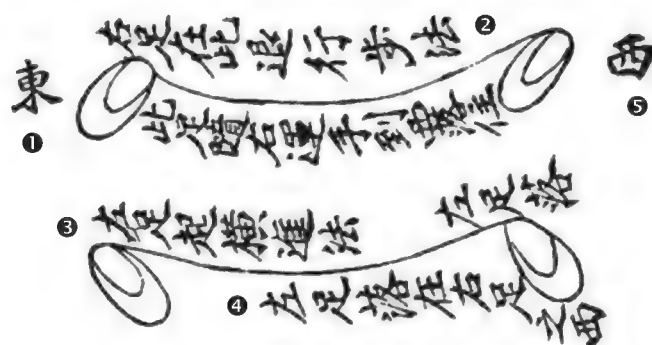 東
❶
右足在此退行步法
❷
西
❺
此足隨右運手到西落注
❸
左足起橫進法
左足落
❹
左足落在右足之西